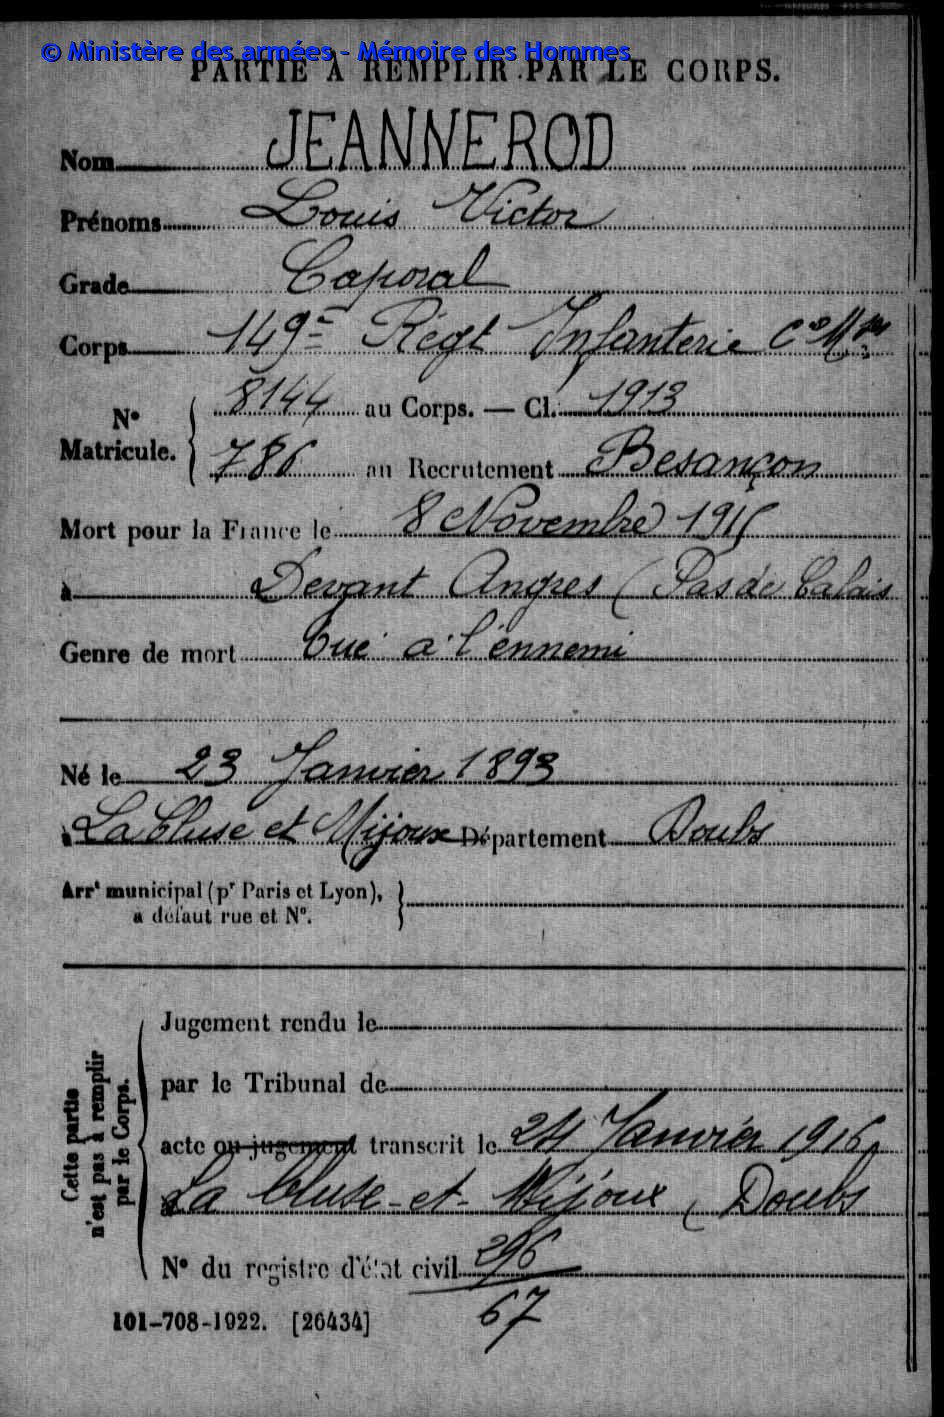 © Ministère des armées - Mémoire des Hommes
PARTIE À REMPLIR PAR LE CORPS.
Nom JEANNEROD
Prénoms Louis Victor
Grade Caporal
Corps 149e Régt Infanterie Cie Mses
N° Matricule. { 8144 au Corps. — Cl. 1913
786 au Recrutement Besançon
Mort pour la France le 8 Novembre 1915
à Devant Angres (Pas de Calais
Genre de mort Tué à l'ennemi
Né le 23 Janvier 1893
à La Cluse et Mijoux Département Doubs
Arrt municipal (pr Paris et Lyon),
à défaut rue et N°. }
Cette partie n'est pas à remplir par le Corps. {
Jugement rendu le
par le Tribunal de
acte ou jugement transcrit le 24 Janvier 1916
à La Cluse-et-Mijoux (Doubs
N° du registre d'état civil 296
67
101-708-1922. [26434]